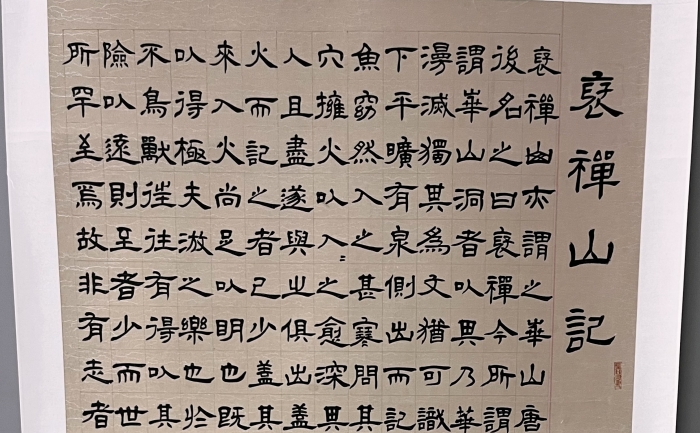 裒禪山記
裒禪山亦謂之華山唐
後名之曰裒禪今所謂
謂華山洞者以其乃華
漫滅獨其為文猶可識
下平曠有泉側出而記
魚窈然入之甚寒問其
穴擁火以入〻之愈深其
人且盡遂與之俱出蓋
火而記之者已少蓋其
來入火尚足以明也既
以得極夫遊之樂也於
不鳥獸往往有得以其
險以遠則至者少而世
所罕至焉故非有志者